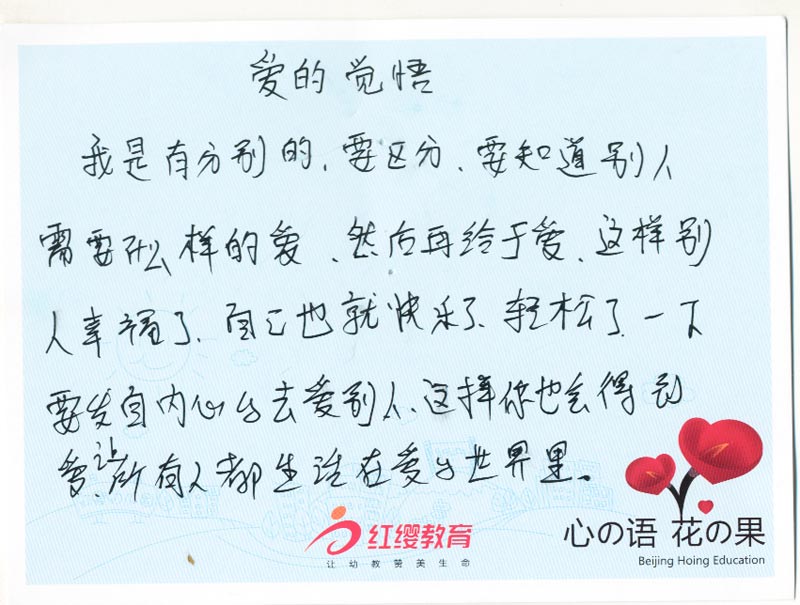 爱的觉悟
我是有分别的、要区分、要知道别人
需要什么样的爱、然后再给于爱、这样别
人幸福了、自己也就快乐了、轻松了、一下
要发自内心的去爱别人、这样你也会得到
爱、让所有人都生活在爱的世界里。
红缨教育
让幼教赞美生命
心の语 花の果
Beijing Hoing Education